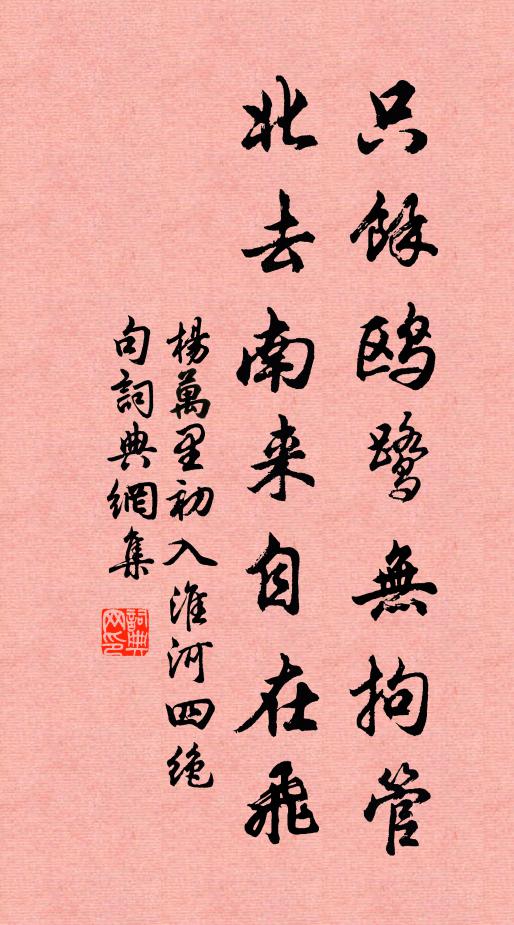 只餘鸥鹭無拘管
北去南来自在飛
楊萬里初入淮河四绝
句詞典網集
詞典网印